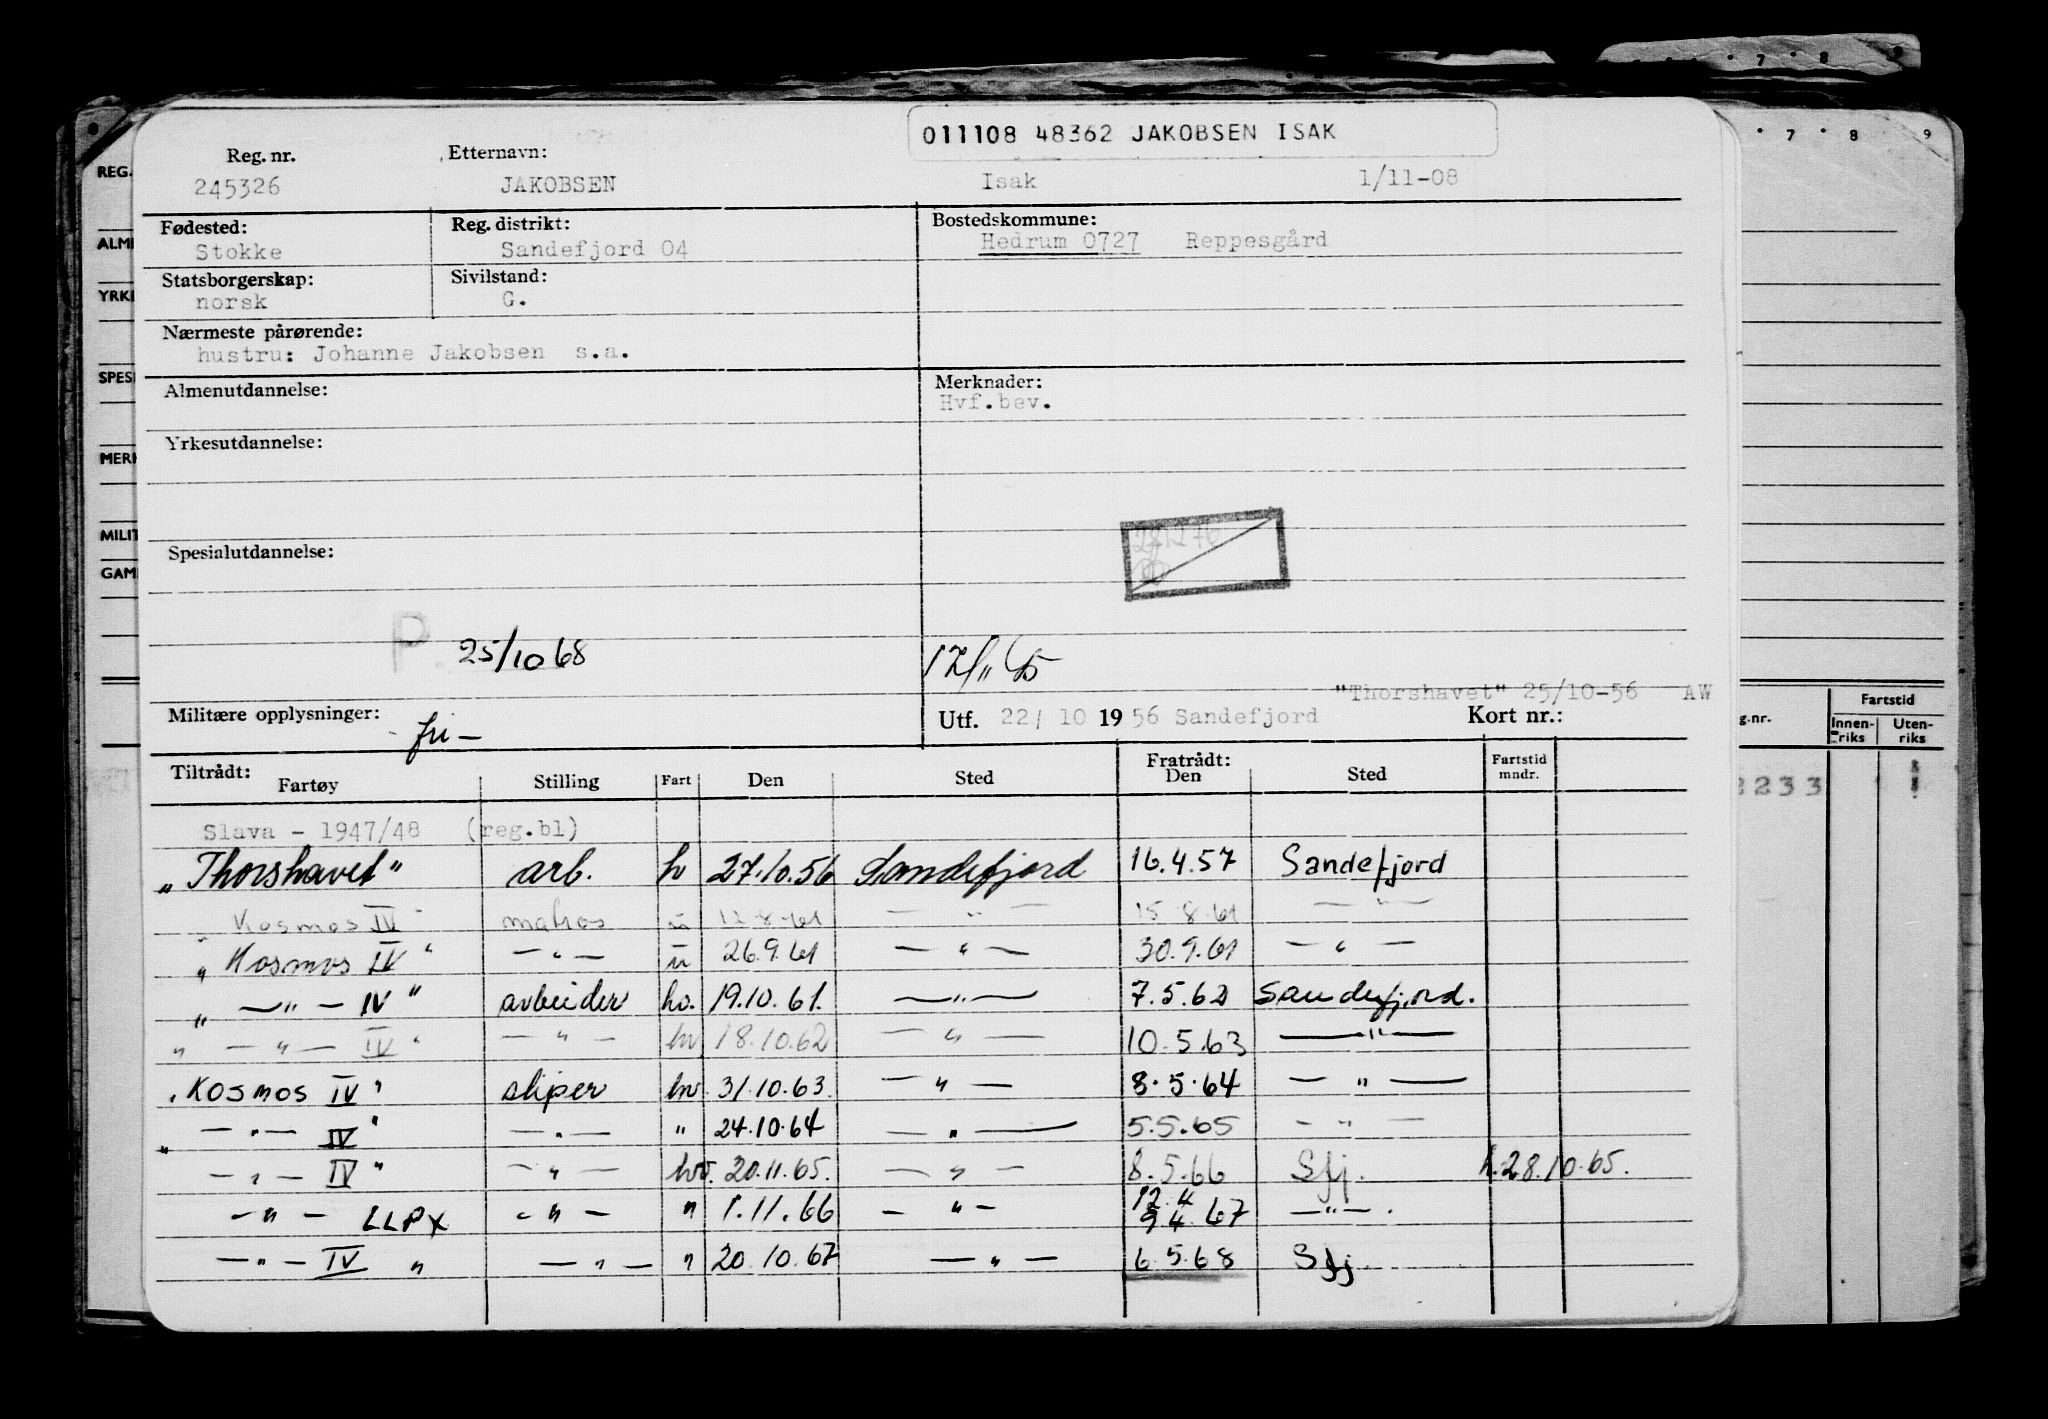 7 8 9
011108 48362 JAKOBSEN ISAK
7 8 9
REG. Reg. nr. Etternavn:
245326 JAKOBSEN Isak 1/11-08
Fødested: Reg. distrikt: Bostedskommune:
ALM Stokke Sandefjord 04 Hedrum 0727 Reppesgård
Statsborgerskap: Sivilstand:
YRKE norsk G.
Nærmeste pårørende:
hustru: Johanne Jakobsen s.a.
SPESI Almenutdannelse: Merknader:
Hvf.bev.
Yrkesutdannelse:
MERK
MILIT
Spesialutdannelse:
GAM
P. 25/10 68 12/11 65
"Thorshavet" 25/10-56 AW
Militære opplysninger: fri — Utf. 22/ 10 1956 Sandefjord Kort nr.:
g.nr. Fartstid
Innen-riks Uten-riks
Tiltrådt: Fratrådt:
Fartøy Stilling Fart Den Sted Den Sted Fartstid mndr.
2233
Slava - 1947/48 (reg.bl)
"Thorshavet" arb. hv 27.10.56 Sandefjord 16.4.57 Sandefjord
" Kosmos IV " matros u 12 8 61 — " — 15 8 61 — " —
" Kosmos IV " — " — u 26.9.61 — " — 30.9.61 — " —
" — " — IV " arbeider hv. 19.10.61. — " — 7.5.62 Sandefjord.
" — " — IV " — " — hv 18.10.62 — " — 10.5.63 — " —
" Kosmos IV " sliper hv 31.10.63. — " — 8.5.64 — " —
" — " — IV " — " — " 24.10.64 — " — 5.5.65 — " —
— " — IV " — " — hv. 20.11.65. — " — 8.5.66 Sfj. h.28.10.65.
— " — LLPX — " — " 1.11.66 — " — 12.4 9 4. 67 — " — .
— " — IV " — " — " 20.10.67 — " — 6.5.68 Sfj.